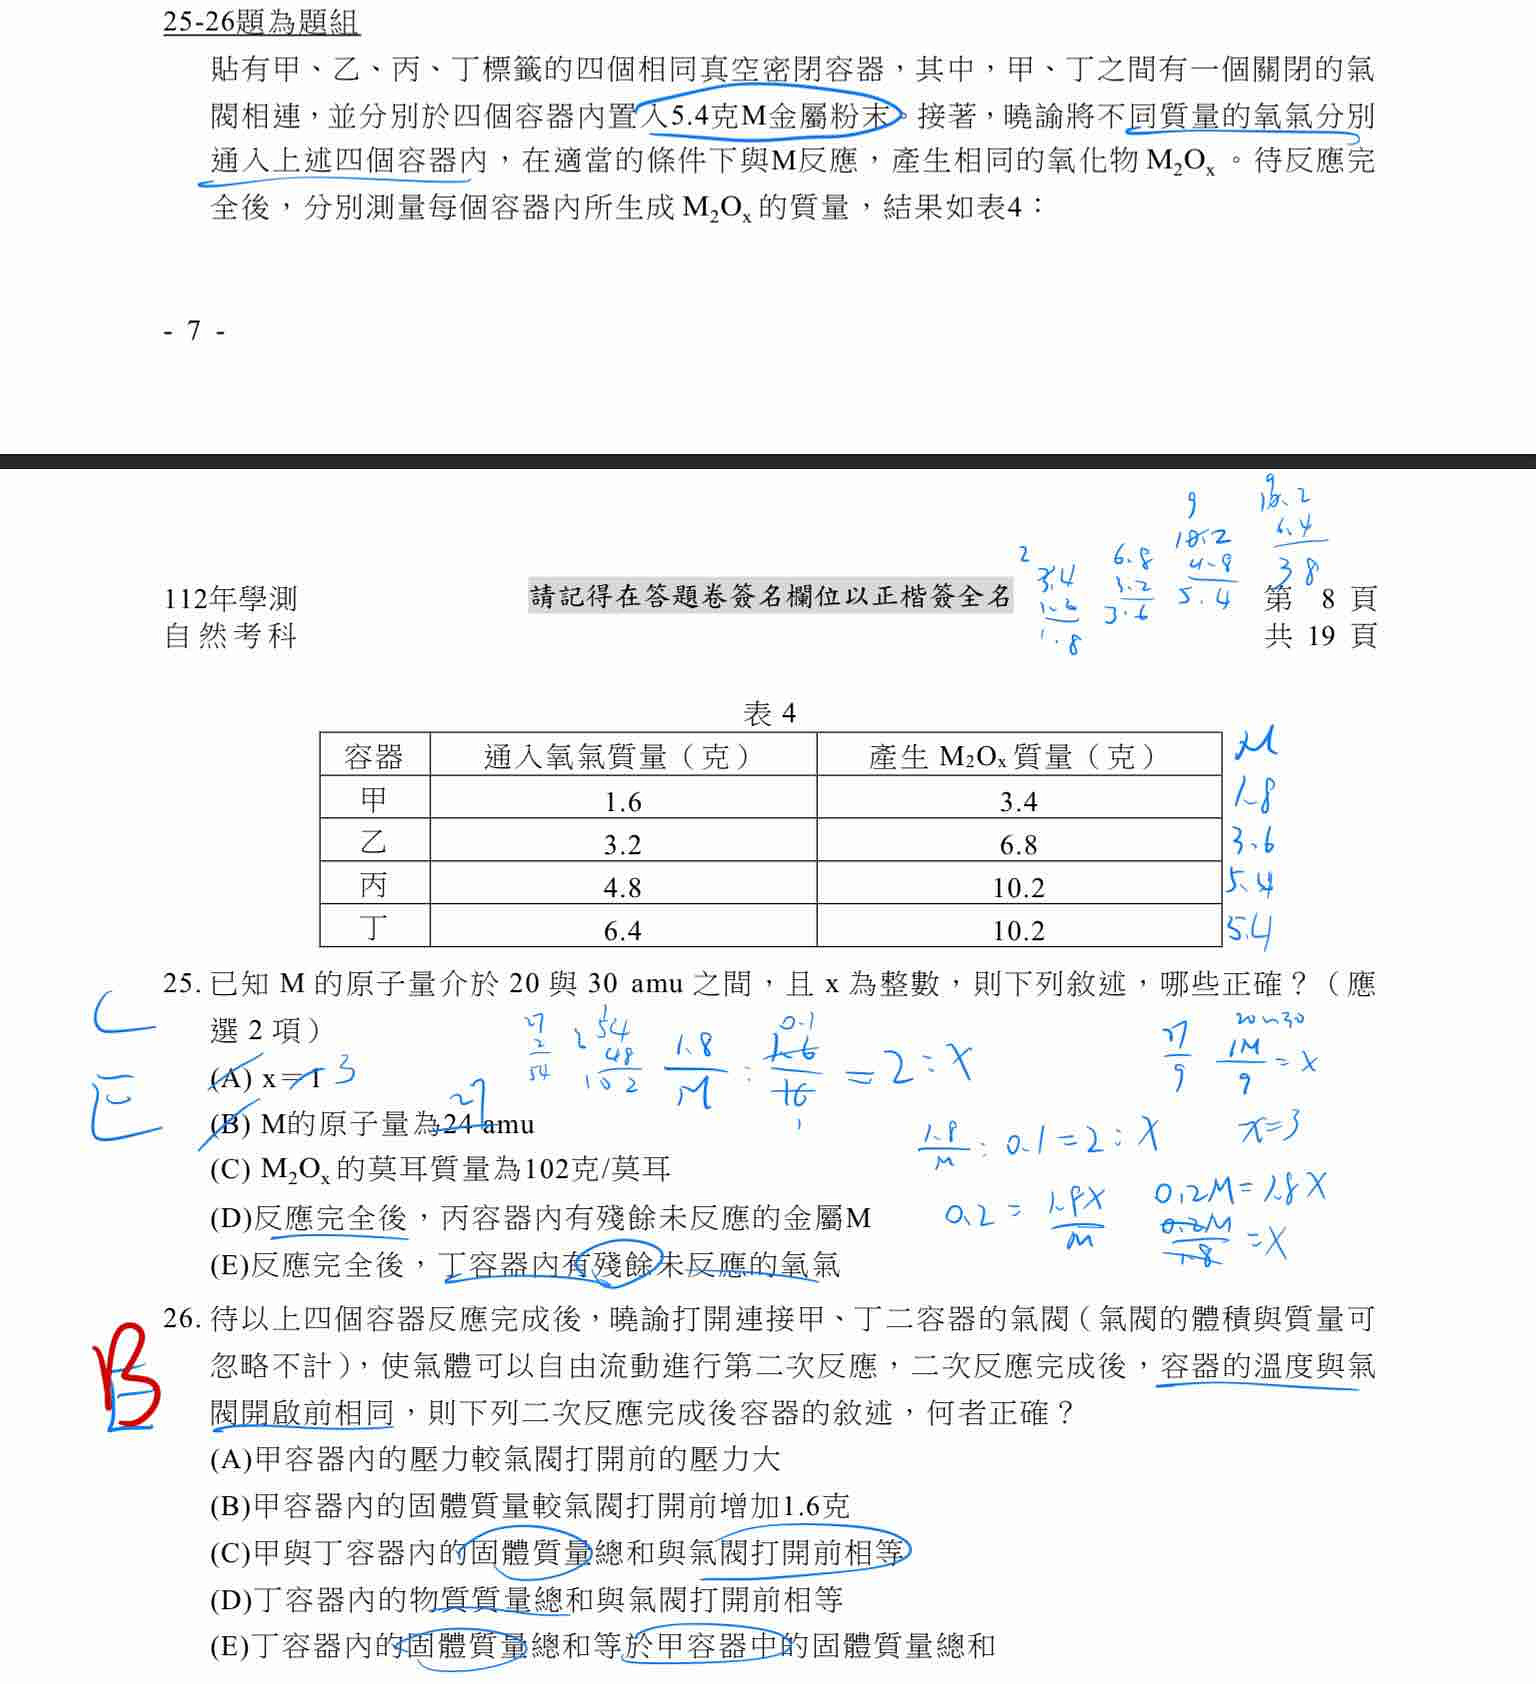 25-26題為題組
貼有甲、乙、丙、丁標籤的四個相同真空密閉容器，其中，甲、丁之間有一個關閉的氣
閥相連，並分別於四個容器內置入5.4克M金屬粉末。接著，曉諭將不同質量的氧氣分別
通入上述四個容器內，在適當的條件下與M反應，產生相同的氧化物 M₂Oₓ。待反應完
全後，分別測量每個容器內所生成 M₂Oₓ 的質量，結果如表4：
- 7 -
9
18.2
4.8
5.4
6.4
3.8
2
3.4
1.6
1.8
6.8
3.2
3.6
112年學測
自然考科
請記得在答題卷簽名欄位以正楷簽全名
第 8 頁
共 19 頁
表 4
容器 通入氧氣質量（克） 產生 M₂Oₓ 質量（克） M
甲 1.6 3.4 1.8
乙 3.2 6.8 3.6
丙 4.8 10.2 5.4
丁 6.4 10.2 5.4
25. 已知 M 的原子量介於 20 與 30 amu 之間，且 x 為整數，則下列敘述，哪些正確？（應
選 2 項）
C
E
(A) x＝1 3
(B) M的原子量為24 amu
27
(C) M₂Oₓ 的莫耳質量為102克/莫耳
(D)反應完全後，丙容器內有殘餘未反應的金屬M
(E)反應完全後，丁容器內有殘餘未反應的氧氣
27
2
54
54
48
102
1.8/M : 1.6/16 = 2 : X
0.1
1
1.8/M : 0.1 = 2 : X
0.2 = 1.8X/M
0.2M = 1.8X
0.2M/1.8 = X
27/9
20~30
1M/9 = X
x=3
26. 待以上四個容器反應完成後，曉諭打開連接甲、丁二容器的氣閥（氣閥的體積與質量可
忽略不計），使氣體可以自由流動進行第二次反應，二次反應完成後，容器的溫度與氣
閥開啟前相同，則下列二次反應完成後容器的敘述，何者正確？
B
(A)甲容器內的壓力較氣閥打開前的壓力大
(B)甲容器內的固體質量較氣閥打開前增加1.6克
(C)甲與丁容器內的固體質量總和與氣閥打開前相等
(D)丁容器內的物質質量總和與氣閥打開前相等
(E)丁容器內的固體質量總和等於甲容器中的固體質量總和